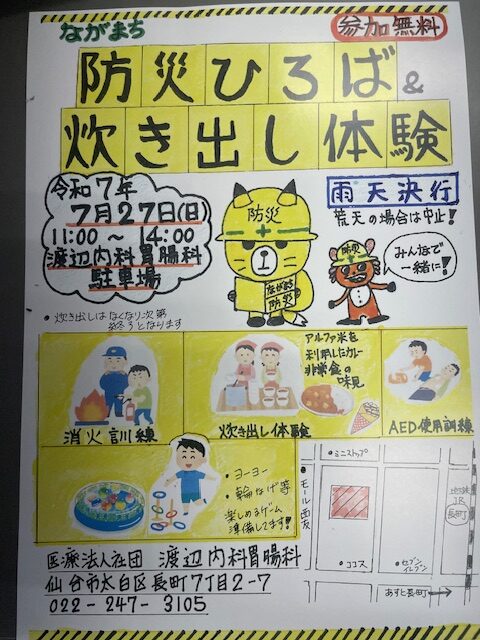 ながまち
参加無料
防災ひろば&
炊き出し体験
令和7年
7月27日(日)
11:00 ～ 14:00
渡辺内科胃腸科
駐車場
防災
ながまち
防災
雨天決行
荒天の場合は中止!
防災
みんなで
一緒に!
•炊き出しはなくなり次第
終了となります
消火訓練
炊き出し体験
アルファ米を
利用したカレー
非常食の
味見
AED使用訓練
•ヨーヨー
•輪なげ等
楽しめるゲーム
準備してます!!
•ミニストップ
•モール西友
•ココス
•セブン
イレブン
地下鉄
JR
長町
あすと長町
医療法人社団 渡辺内科胃腸科
仙台市太白区長町7丁目2-7
022-247-3105